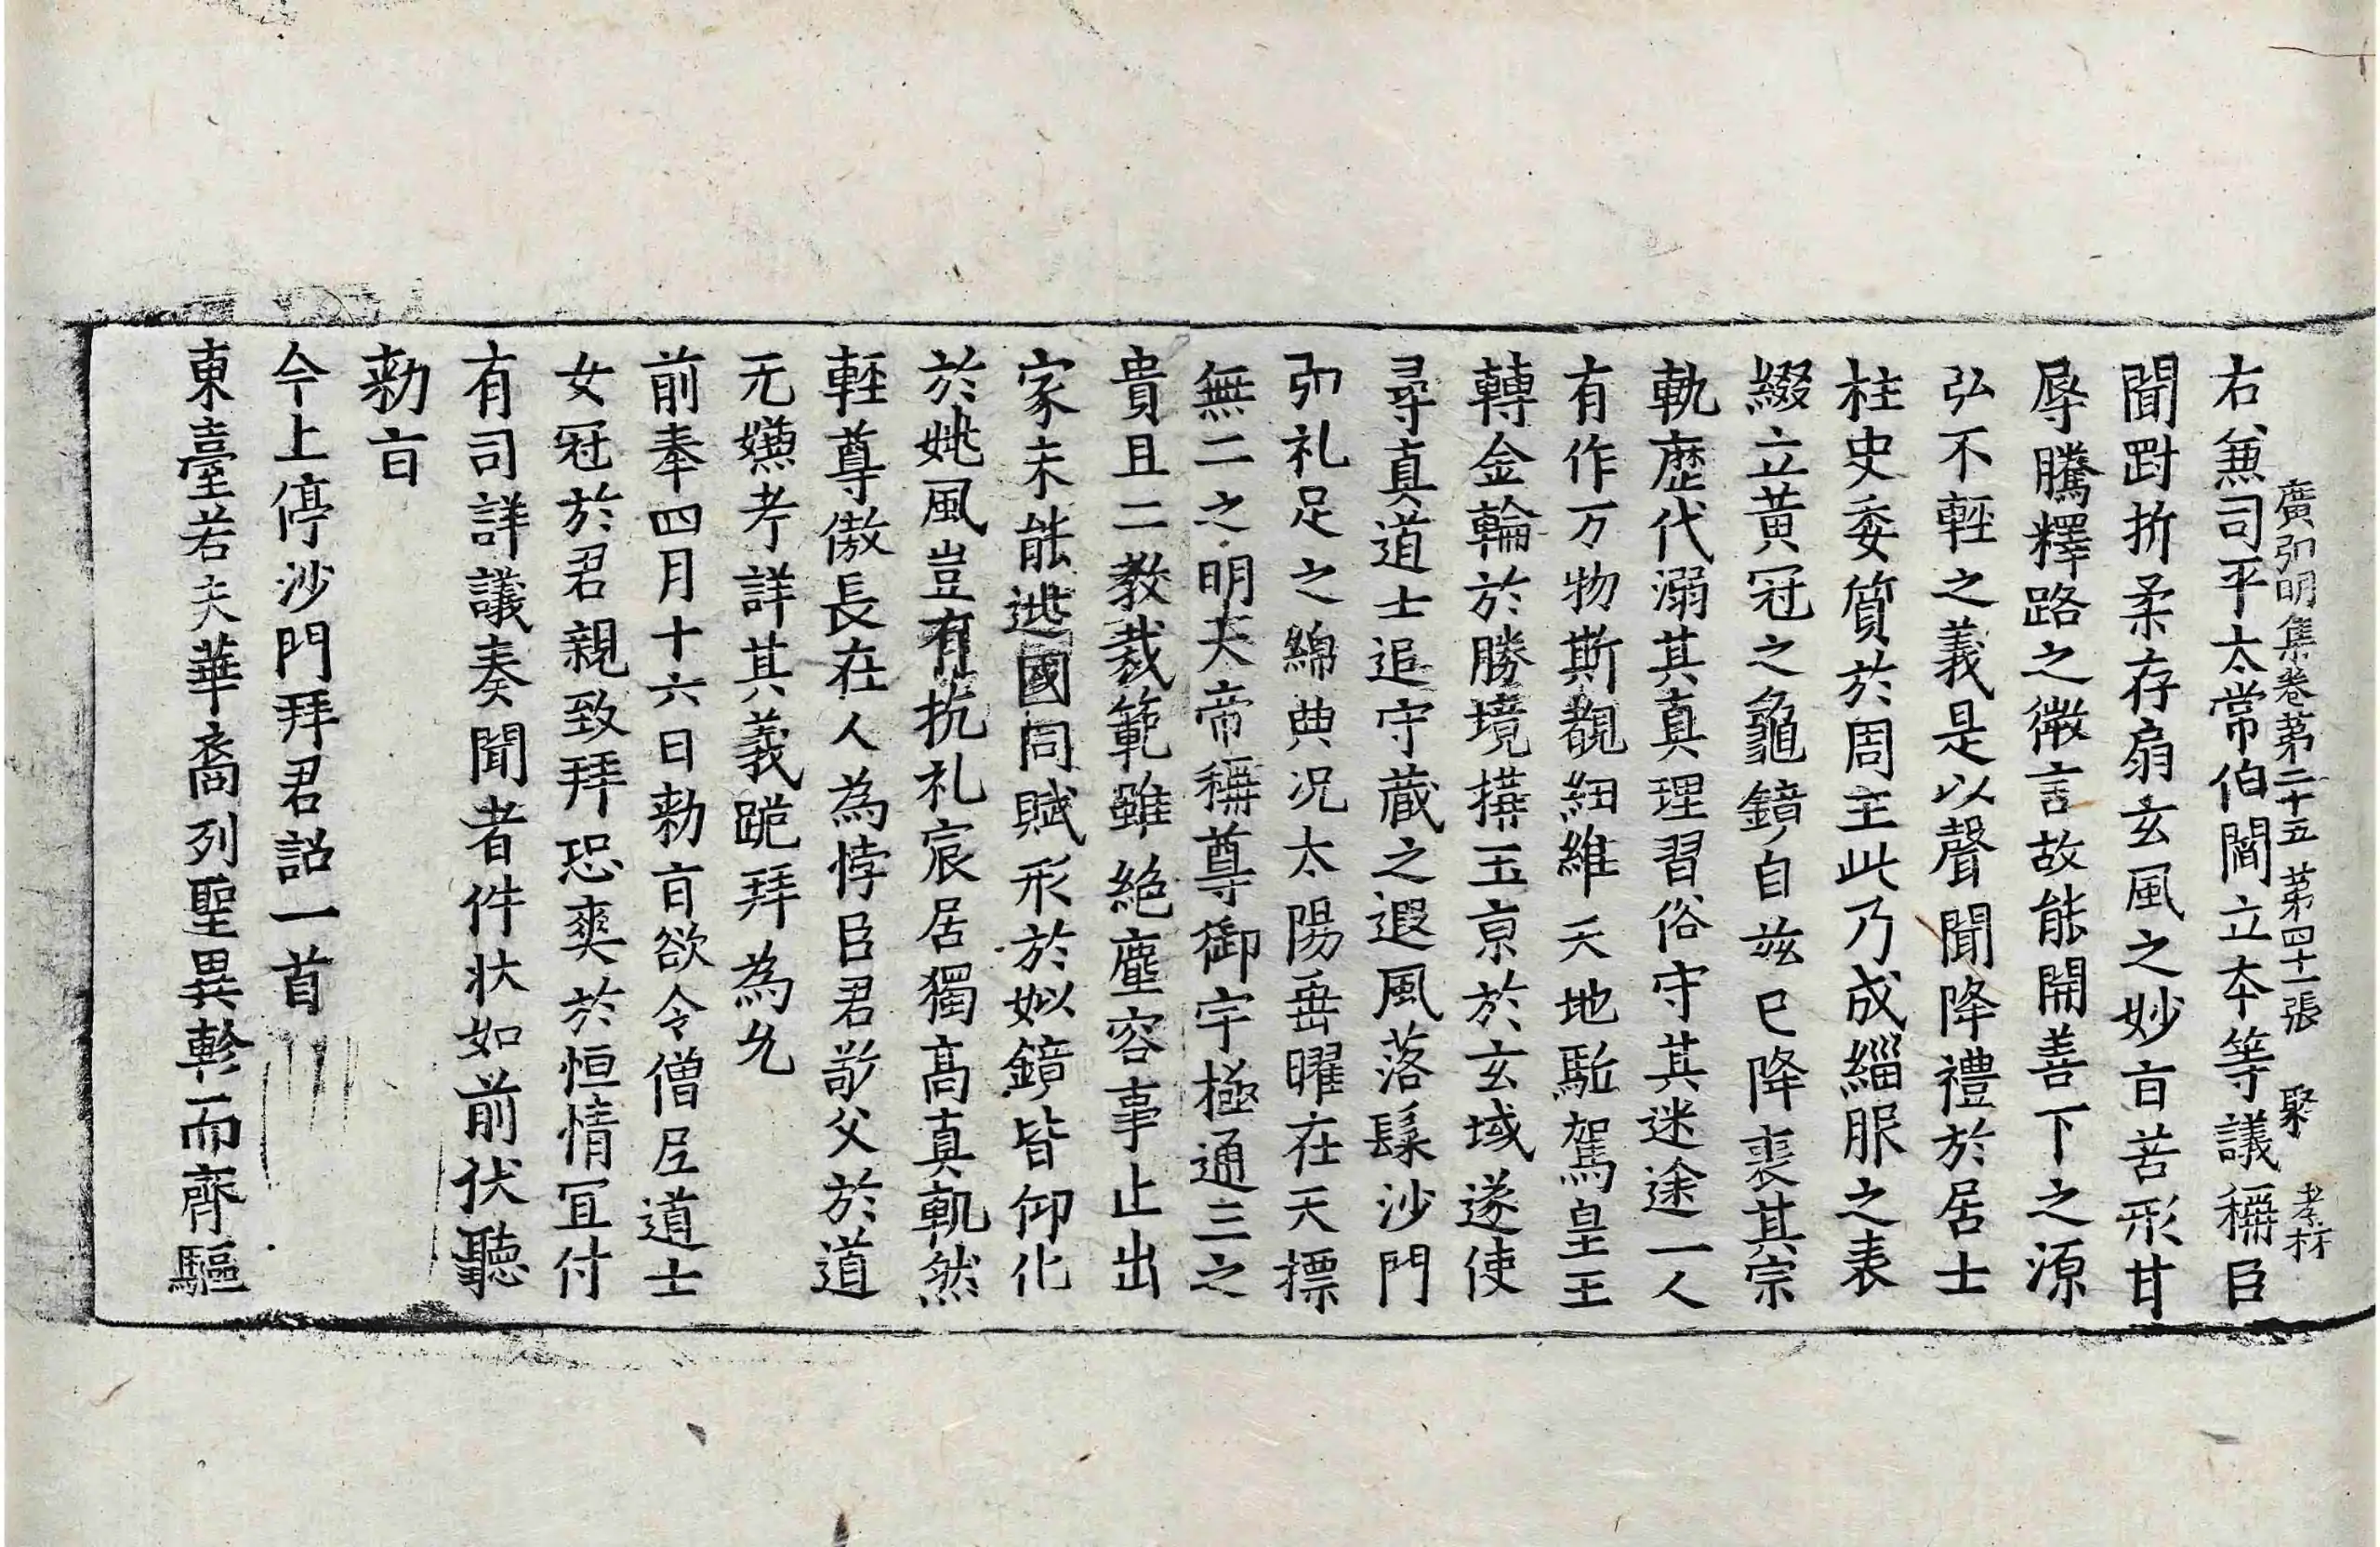 廣弘明集卷第二十五 第四十一張 聚 孝材
右兼司平太常伯閻立本等議稱臣
聞剛折柔存扇玄風之妙旨苦形甘
辱騰釋路之微言故能開善下之源
弘不輕之義是以聲聞降禮於居士
柱史委質於周王此乃成緇服之表
綴立黃冠之龜鏡自茲已降喪其宗
軌歷代溺其真理習俗守其迷途一人
有作万物斯覩紐維天地駈駕皇王
轉金輪於勝境搆玉京於玄域遂使
尋真道士追守藏之遐風落髮沙門
弘礼足之綿典况太陽垂曜在天摽
無二之明大帝稱尊御宇極通三之
貴且二教裁範雖絕塵容事止出
家未能逃國同賦形於姒鏡皆仰化
於姚風豈有抗礼宸居獨高真軌然
輕尊傲長在人為悖臣君敬父於道
无嫌考詳其義跪拜為允
前奉四月十六日勑旨欲令僧尼道士
女冠於君親致拜恐爽於恒情宜付
有司詳議奏聞者件状如前伏聽
勑旨
今上停沙門拜君詔一首
東臺若夫華裔列聖異軫而齊驅